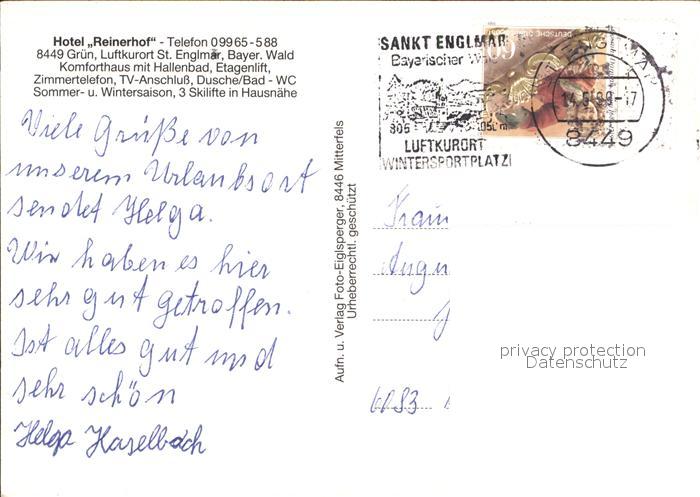 Hotel „Reinerhof" - Telefon 09965-588
8449 Grün, Luftkurort St. Englmar, Bayer. Wald
Komforthaus mit Hallenbad, Etagenlift,
Zimmertelefon, TV-Anschluß, Dusche/Bad - WC
Sommer- u. Wintersaison, 3 Skilifte in Hausnähe
Viele Grüße von
unserem Urlaubsort
sendet Helga.
Wir haben es hier
sehr gut getroffen.
Ist alles gut und
sehr schön
Helga Haselbach
Aufn. u. Verlag Foto-Eiglsperger, 8446 Mitterfels
Urheberrechtl. geschützt
SANKT ENGLMAR
Bayerischer
805
LUFTKURORT
WINTERSPORTPLATZ
DEUTSCHE
60
8449
6083
privacy protection
Datenschutz